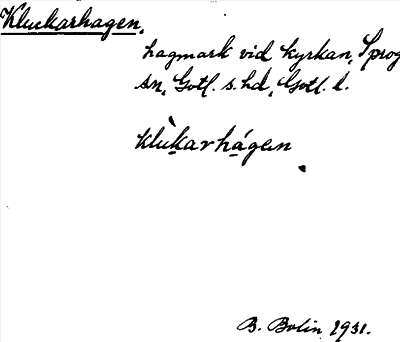 Kluckarhagen,
hagmark vid kyrkan, Sprog
sn, Gotl. s. hd, Gotl. l.
klùkarhágen
B. Bolin 1931.